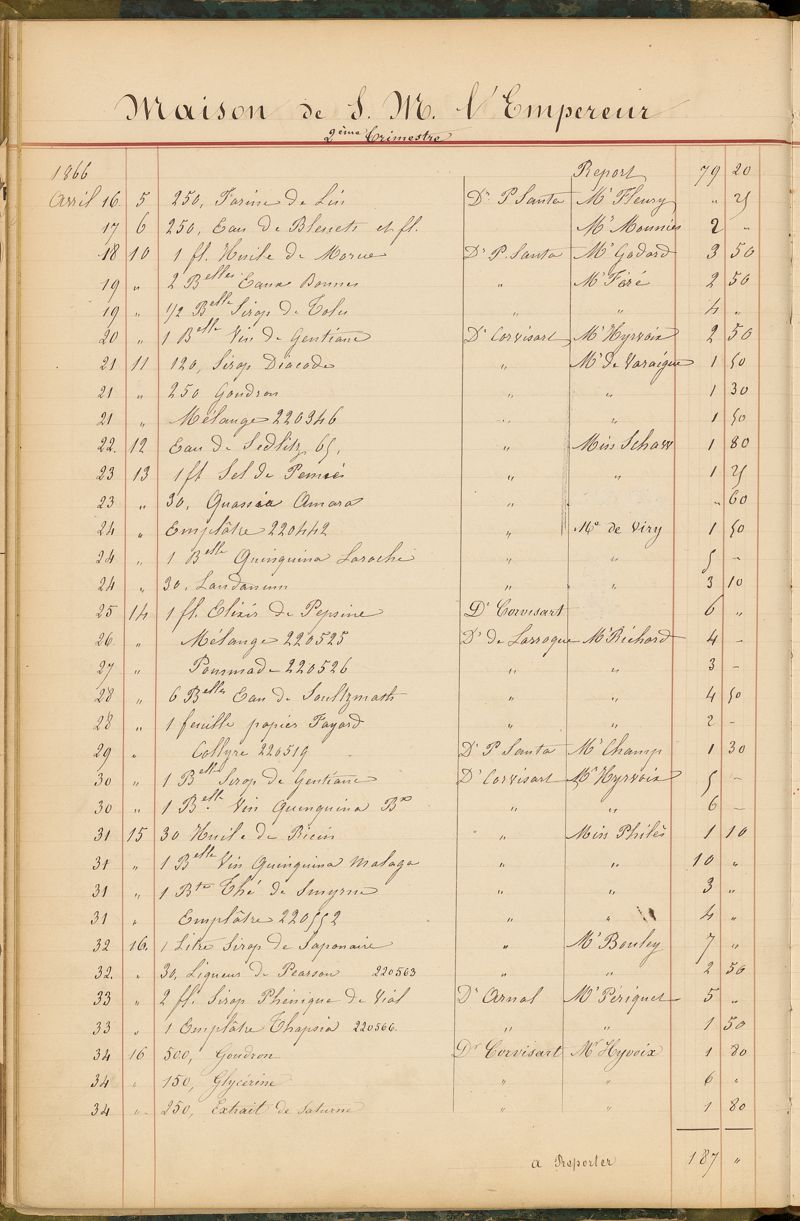 Maison de S. M. l'Empereur
2ème Trimestre
1866 Report 79 20
Avril 16 5 250, Farine de Lin Dr P. Santa Mr Fleury " 25
17 6 250, Eau de Bleuets et fl. Mr Mounier 2 "
18 10 1 fl. Huile de Morue Dr P. Santa Mr Godard 3 50
19 " 2 Belles Eaux Bonnes " Mr Féré 2 50
19 " 1/2 Belle Sirop de Tolu " " 4 "
20 " 1 Belle Vin de Gentiane Dr Corvisart Mr Hyrvoix 2 50
21 11 120, Sirop Diacode " Mr de Varaigne 1 50
21 " 250 Goudron " " 1 30
21 " Mélange 220346 " " 1 50
22. 12 Eau de Sedlitz 65, " Miss Schaw 1 80
23 13 1 fl Sel de Pennès " " 1 25
23 " 30, Quassia Amara " " 60
24 " Emplâtre 220442 " Me de Viry 1 50
24 " 1 Belle Quinquina Laroche " " 5 –
24 " 30, Laudanum " " 3 10
25 14 1 fl. Elixir de Pepsine Dr Corvisart 6 "
26. " Mélange 220525 Dr de Larroque Mr Richard 4 –
27 " Pommade 220526 " " 3 –
28 " 6 Belles Eau de Soultzmatt " " 4 50
28 " 1 feuille papier Fayard " " 2 –
29 " Collyre 220519 Dr P. Santa Mr Champ 1 30
30 " 1 Belle Sirop de Gentiane Dr Corvisart Mr Hyrvoix 5 –
30 " 1 Belle Vin Quinquina Bx " " 6 –
31 15 30 Huile de Ricin " Miss Philès 1 10
31 " 1 Belle Vin Quinquina Malaga " " 10 "
31 " 1 Bte Thé de Smyrne " " 3 "
31 " Emplâtre 220552 " " 4 "
32 16. 1 Litre Sirop de Saponaire " Mr Bouley 7 "
32. " 30, Liqueur de Pearson 220563 " " 2 50
33 " 2 fl. Sirop Phénique de Vial Dr Arnal Mr Périquet 5 "
33 " 1 Emplâtre Thapsia 220566. " " 1 50
34 16 500, Goudron Dr Corvisart Mr Hyvoix 1 80
34 " 150, Glycérine " " 6 "
34 " 250, Extrait de Saturne " " 1 80
a Reporter 187 "